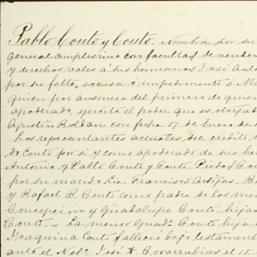 Pablo Couto y Couto. Nombra por su
general amplisimo con facultad de vender
y derechos reales a sus hermanos José Anto
por su falta, escusa é impedimento á M
quien por ausencia del primero de
apoderado, ejercite el poder que se otorga
Agustin Roldan con fecha 17 de Enero de
Los representantes actuales del crédito
do Couto por sí y como apoderado de sus he
Antonio, y Pablo Couto y Couto, Piedad Co
por su marido Lic. Francisco Artigas, R
y Rafael B. Couto como padre de los me
Concepcion y Guadalupe Couto, hijas
Couto. La menor hija d
Joaquina Couto falleció bajo testament
ante el Not. José A. Covarrubias el 15